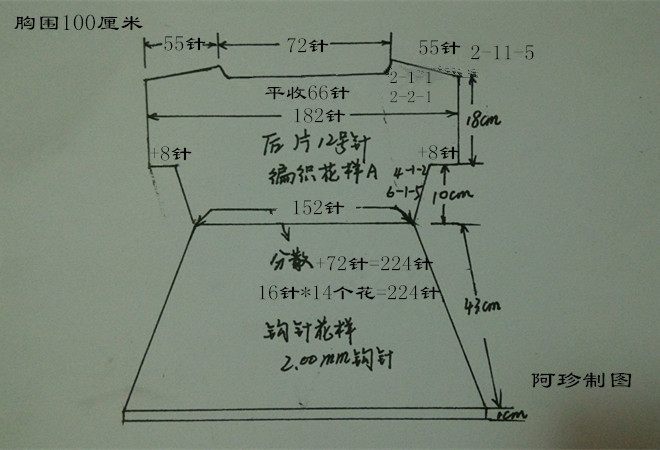 胸围100厘米
55针
72针
55针 2-11-5
2-1-1
平收66针
2-2-1
182针
18cm
后片12号针
+8针
+8针
编织花样A
4-1-2
6-1-5
10cm
152针
分散+72针=224针
16针*14个花=224针
43cm
钩针花样
2.00mm钩针
阿珍制图
1cm